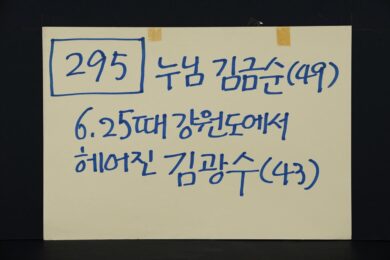 295 누님 김금순(49)
6.25때 강원도에서
헤어진 김광수(43)